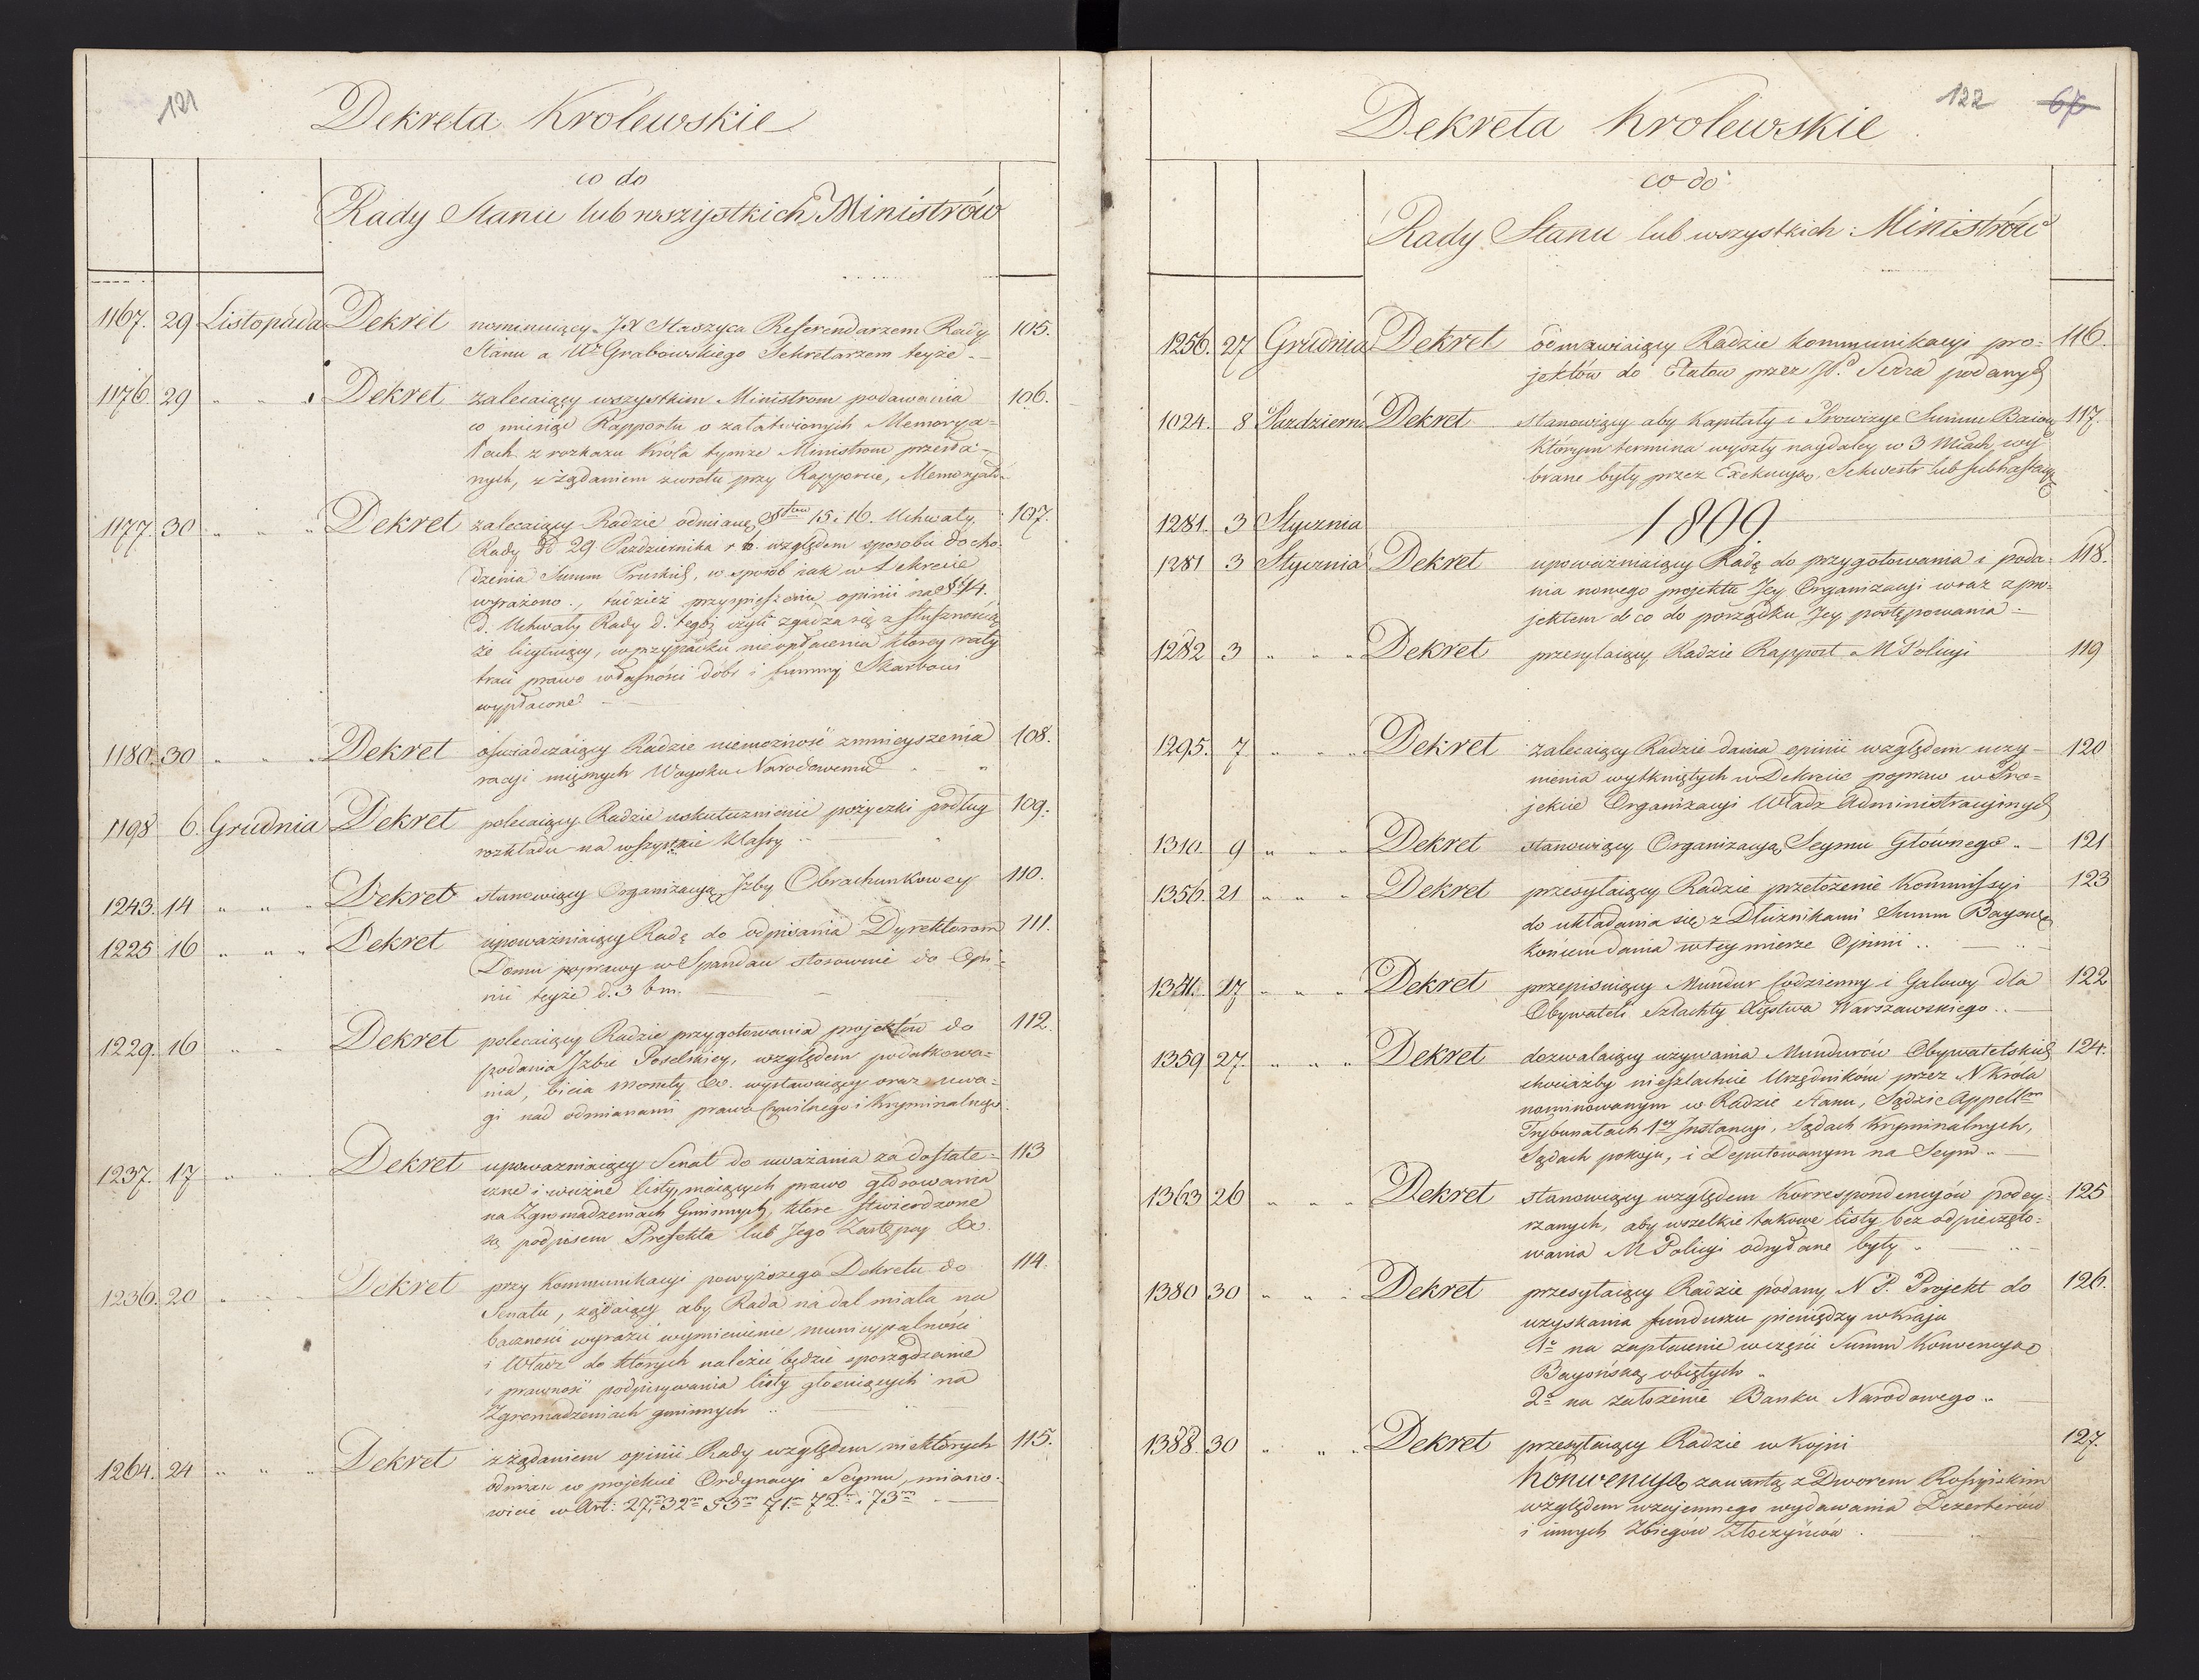 121
Dekreta Krolewskie
co do
Rady Stanu lub wszystkich Ministrów
1167. 29 Listopada Dekret nominuiący JX Staszyca Referendarzem Rady 105.
Stanu a Ur Grabowskiego Sekretarzem teyże.
1176. 29 " " " Dekret zalecaiący wszystkim Ministrom podawania 106.
co miesiąc Rapportu o załatwionych Memorya=
łach z rozkazu Króla tymże Ministrom przesła=
nych, z żądaniem zwrotu przy Rapporcie, Memoryałów
1177. 30 " " " Dekret zalecaiący Radzie odmianę 15 i 16. Uchwały 107.
Rady 29 Pazdziernika r b. względem sposobu docho=
dzenia Summ Pruskich, w sposób iak w Dekrecie
wyrażono, tudzież przyspieszenie opinii na § 14.
d. Uchwały Rady d. tegoż czyli zgadza się z słusznością
że licytuiący, w przypadku nieopłacenia którey raty
traci prawo własności dóbr i summy Skarbowi
wypłacone
1180. 30 " " " Dekret oświadczaiący Radzie niemożność zmnieyszenia 108.
racyi mięsnych Woysku Narodowemu "
1198 6. Grudnia Dekret polecaiący Radzie uskutecznienie pożyczki podług 109.
rozkładu na wszystkie klassy
1243. 14 " " " Dekret stanowiący Organizacyą Izby Obrachunkowey 110.
1225 16 " " " Dekret upoważniaiący Radę do odpisania Dyrektorom 111.
Domu poprawy w Spandau stosownie do Opi=
nii teyże d. 3 b m.
1229. 16 " " Dekret polecaiący Radzie przygotowania projektów do 112.
podania Izbie Poselskiey, względem podatkowa=
nia, bicia monety &c. wystawuiący oraz uwa=
gi nad odmianami prawa Cywilnego i Kryminalnego
1237. 17 " " Dekret upoważniaiący Senat do uważania za dostate= 113
czne i ważne listy, maiących prawo głosowania
na Zgromadzeniach Gminnych, które stwierdzone
są podpisem Prefekta lub Jego Zastępcy &c.
1236. 20 " " " Dekret przy Kommunikacyi powyższego Dekretu do 114.
Senatu, żądaiący aby Rada na dal miała na
baczności wyrazić wymienienie municypalności
i Władz do których należeć będzie sporządzenie
i prawność podpisywania listy głosuiących na
Zgromadzeniach gminnych
1264. 24 " " " Dekret z żądaniem opinii Rady względem niektórych 115.
odmian w projekcie Ordynacyi Seymu, miano=
wicie w Art: 27m 32m 53m 71m 72m i 73m
122 66
Dekreta Krolewskie
co do
Rady Stanu lub wszystkich Ministrów
1256. 27 Grudnia Dekret odmawiaiący Radzie kommunikacyi pro= 116.
jektów do Etatów przez JP. Serra podanych
1024. 8 Pazdziern Dekret stanowiący aby Kapitały i Prowizye Summ Baion 117.
którym termina wyszły naydaley w 3 Miach wy=
brane były przez Exekucyą, Sekwestr lub subhastacyą
1281. 3 Stycznia 1809.
1281 3 Stycznia Dekret upoważniaiący Radę do przygotowania i poda= 118.
nia nowego projektu Jey Organizacyi wraz z pro=
jektem d co do porządku Jey postępowania
1282 3 " " " Dekret przesyłaiący Radzie Rapport M Policyi 119
1295. 7 " " " Dekret zalecaiący Radzie dania opinii względem uczy= 120
nienia wytkniętych w Dekrecie popraw w Pro=
jekcie Organizacyi Władz Administracyinych
1310. 9 " " " Dekret stanowiący Organizacyą Seymu Głównego 121
1356. 21 " " " Dekret przesyłaiący Radzie przełożenie Kommissyi 123
do układania się z Dłużnikami Summ Bayońs
końcem dania w tey mierze Opinii
27 " " " Dekret przepisuiący Mundur Codzienny i Galowy dla 122
Obywateli Szlachty Xięstwa Warszawskiego
1359 27. " " " Dekret dozwalaiący używania Mundurów Obywatelskich 124.
chociażby nieszlachcie Urzędników przez N Króla
nominowanym w Radzie Stanu, Sądzie Appellm
Trybunałach 1ey Instancyi, Sądach Kryminalnych,
Sądach pokoju, i Deputowanym na Seym
1363 26 " " " Dekret stanowiący względem Korrespondencyów podey= 125
rzanych, aby wszelkie takowe listy bez odpieczęto=
wania M Policyi odsyłane były
1380 30 " " " Dekret przesyłaiący Radzie podany N P. Projekt do 126.
uzyskania funduszu pieniędzy w kraju
1o na zapłacenie w części Summ Konwencyą
Bayońską obiętych
2o na założenie Banku Narodowego
1388. 30 " " " Dekret przesyłaiący Radzie w kopii 127.
Konwencyą zawartą z Dworem Rossyiskim
względem wzajemnego wydawania Dezerterów
i innych Zbiegów Złoczyńców